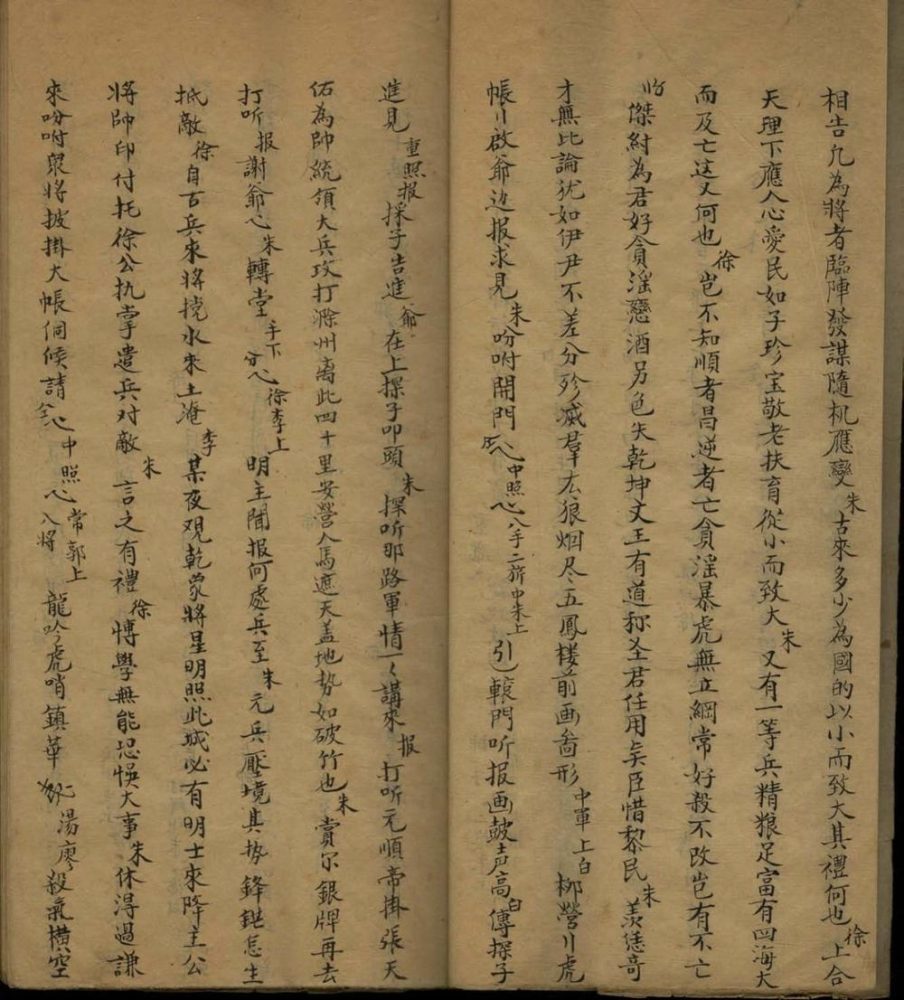 相告凡為將者臨陣發謀隨机應變朱古來多少為國的以小而致大其禮何也徐上合
天理下應人心愛民如子珍宝敬老扶育從小而致大朱又有一等兵精粮足富有四海大
而及亡这又何也徐岂不知順者昌逆者亡貪淫暴虎無立綱常好殺不改岂有不亡
傑紂為君好貪淫戀酒另色失乾坤文王有道称圣君任用矣臣惜黎民朱羨恁奇
才無比論犹如伊尹不差分殄滅羣広狼烟尽五鳳楼前画啚形中軍上白柳營刂虎
帳刂啟爺边报求見朱吩咐開門中照八手二旂中朱上引轅門听报画鼓声高白傳探子
進見重照报探子告進爺在上探子叩頭朱探听那路軍情一々講來报打听元順帝掛張天
佑為帥統領大兵攻打滁州离此四十里安營人馬遮天盖地势如破竹也朱賞尔銀牌再去
打听报謝爺心朱轉堂手下分心徐李上明主聞报何處兵至朱元兵壓境其势鋒鋩怎生
抵敵徐自古兵來將挠水來土淹李某夜观乾象將星明照此城必有明士來降主公
將帥印付托徐公执掌遣兵对敵朱言之有禮徐愽學無能恐悮大事朱休淂過謙
來吩咐衆將披掛大帳伺候請心中照心八將常郭上龍吟虎哨鎮華湯廖殺氣横空